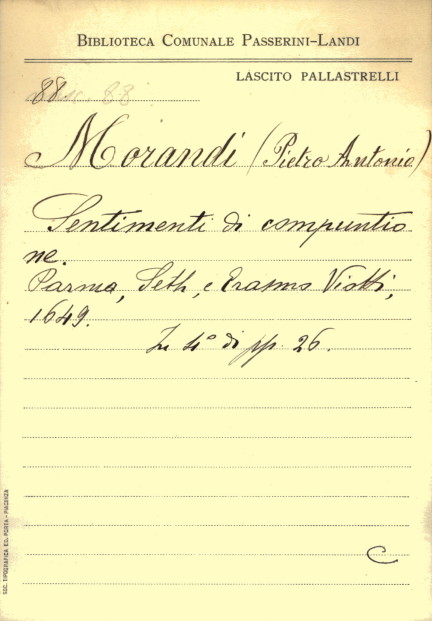 BIBLIOTECA COMUNALE PASSERINI-LANDI
LASCITO PALLASTRELLI
88
Morandi (Pietro Antonio)
Sentimenti di compuntio
ne.
Parma, Seth, e Erasmo Viotti,
1649.
In 4° di pp. 26.
C
SOC. TIPOGRAFICA ED. PORTA - PIACENZA